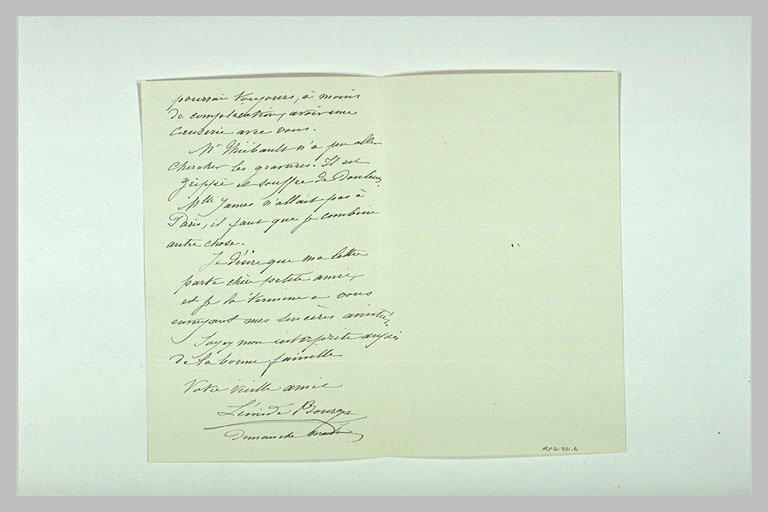 pourrai toujours, à moins
de complication, avoir une
causerie avec vous.
Mr Thiébault n'a pu aller
chercher les gravures. Il est
grippé et souffre de Douleurs,
Mlle James n'allait pas à
Paris, il faut que je combine
autre chose.
Je désire que ma lettre
parte chère petite amie,
et je la termine en vous
envoyant mes sincères amitiés.
Soyez mon interprète auprès
de la bonne famille
Votre vieille amie
Léonide Bourges
Dimanche